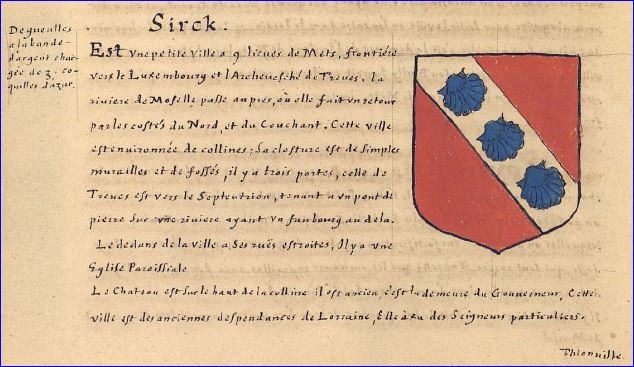 Sirck.
De gueulles
a la bande
d'argent char
gée de 3. co
quilles d'azur.
Est vne petite ville a 9 lieues de Mets, frontiére
vers le Luxembourg et l'Archeuesché de Treues. la
riuiere de Moselle passe aupres, où elle fait vn retour
par les costés du Nord, et du Couchant. Cette ville
est enuironnée de collines; Sa closture est de simples
murailles et de fossés, il y a trois portes, celle de
Treues est vers le Septentrion, tenant a vn pont de
pierre sur vne riuiere ayant vn faubourg au dela.
Le dedans de la ville a ses ruës estroites, Il y a vne
Eglise Paroissiale
Le Chateau est sur le haut de la colline il est ancien, c'est la demeure du Gouuerneur, Cette
ville est des anciennes despendances de Lorraine, Elle a eu des Seigneurs particuliers.
Thionuille.